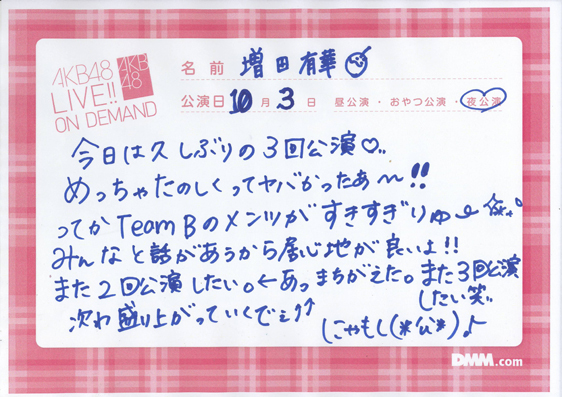 AKB48
LIVE!!
ON DEMAND
AKB
48
名前 増田有華
公演日 10月3日 昼公演・おやつ公演・夜公演
今日は久しぶりの3回公演♡..
めっちゃたのしくってヤバかったぁ〜!!
ってかTeam Bのメンツがすきすぎりゅ
みんなと話があうから居心地が良いよ!!
また2回公演したい。←あっまちがえた。また3回公演
したい笑
次わ盛り上がっていくでぇ↗↑
DMM.com